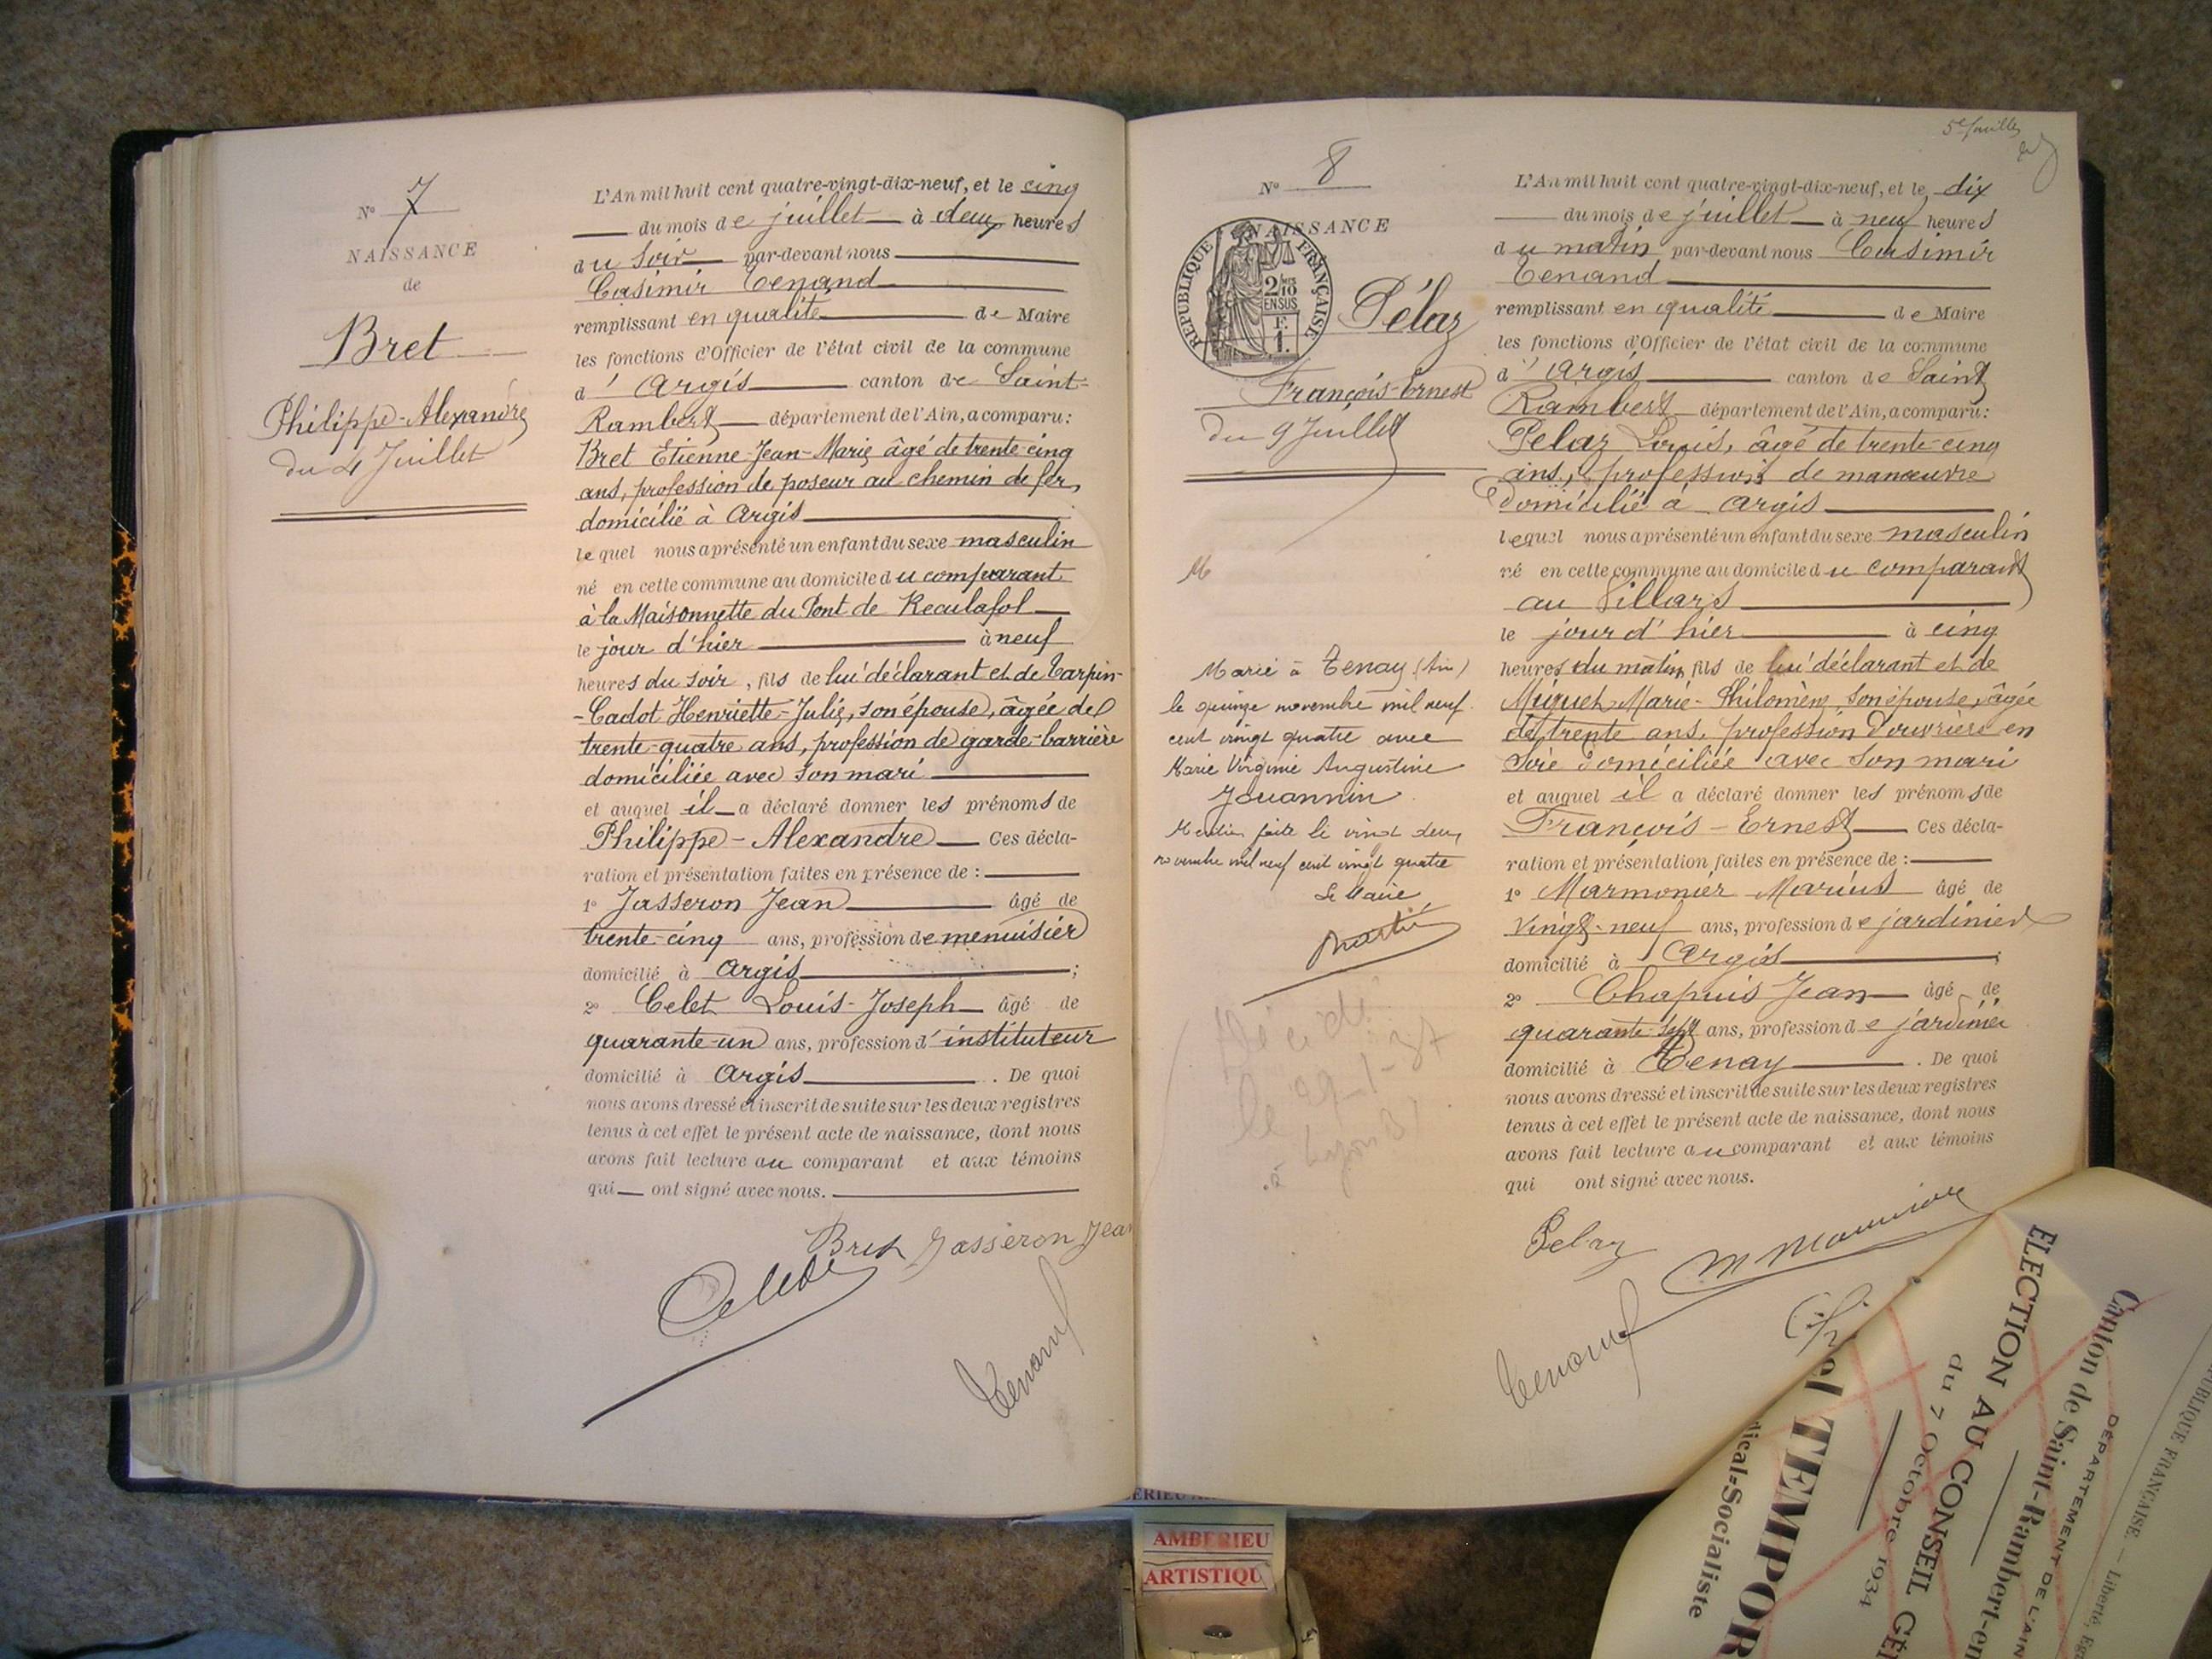 N° 7
NAISSANCE
de
Bret
Philippe-Alexandre
du 4 Juillet
L'An mil huit cent quatre-vingt-dix-neuf, et le cinq
du mois de juillet à deux heures
du soir par-devant nous
Casimir Tenand
remplissant en qualité de Maire
les fonctions d'Officier de l'état civil de la commune
d'Argis canton de Saint-
Rambert département de l'Ain, a comparu:
Bret Etienne-Jean-Marie âgé de trente-cinq
ans, profession de poseur au chemin de fer,
domicilié à Argis
lequel nous a présenté un enfant du sexe masculin
né en cette commune au domicile du comparant
à la Maisonnette du Pont de Reculafol
le jour d'hier à neuf
heures du soir, fils de lui déclarant et de Carpin-
-Cadot Henriette-Julie, son épouse, âgée de
trente-quatre ans, profession de garde-barrière
domiciliée avec son mari
et auquel il a déclaré donner les prénoms de
Philippe-Alexandre Ces décla-
ration et présentation faites en présence de :
1° Jasseron Jean âgé de
trente-cinq ans, profession de menuisier
domicilié à Argis ;
2° Celet Louis-Joseph âgé de
quarante-un ans, profession d'instituteur
domicilié à Argis . De quoi
nous avons dressé et inscrit de suite sur les deux registres
tenus à cet effet le présent acte de naissance, dont nous
avons fait lecture au comparant et aux témoins
qui ont signé avec nous.
Bret Jasseron Jean
Celet
Tenand
5e feuillet
N° 8
NAISSANCE
REPUBLIQUE FRANÇAISE
2/10
EN SUS
F.
1.
Pélaz
François-Ernest
du 9 Juillet
M
Marié à Tenay (Ain)
le quinze novembre mil neuf
cent vingt quatre avec
Marie Virginie Augustine
Jouannin
Mention faite le vingt deux
novembre mil neuf cent vingt quatre
Le Maire
Décédé
le 29-1-37
à Lyon 3e
L'An mil huit cent quatre-vingt-dix-neuf, et le dix
du mois de juillet à neuf heures
du matin par-devant nous Casimir
Tenand
remplissant en qualité de Maire
les fonctions d'Officier de l'état civil de la commune
d'Argis canton de Saint
Rambert département de l'Ain, a comparu:
Pelaz Louis, âgé de trente-cinq
ans, profession de manœuvre
domicilié à Argis
lequel nous a présenté un enfant du sexe masculin
né en cette commune au domicile du comparant
au Villars
le jour d'hier à cinq
heures du matin, fils de lui déclarant et de
Miguet Marie-Philomène, son épouse, âgée
de trente ans, profession d'ouvrière en
soie domiciliée avec son mari
et auquel il a déclaré donner les prénoms de
François-Ernest Ces décla-
ration et présentation faites en présence de :
1° Marmonier Marius âgé de
vingt-neuf ans, profession de jardinier
domicilié à Argis ;
2° Chapuis Jean âgé de
quarante-sept ans, profession de jardinier
domicilié à Tenay . De quoi
nous avons dressé et inscrit de suite sur les deux registres
tenus à cet effet le présent acte de naissance, dont nous
avons fait lecture au comparant et aux témoins
qui ont signé avec nous.
Pelaz
Tenand
UBLIQUE FRANÇAISE. — Liberté, Ég
DÉPARTEMENT DE L'AIN
Canton de Saint-Rambert-en
ELECTION AU CONSEIL GÉ
du 7 Octobre 1934
el TEMPOR
dical-Socialiste
AMBERIEU
ARTISTIQU